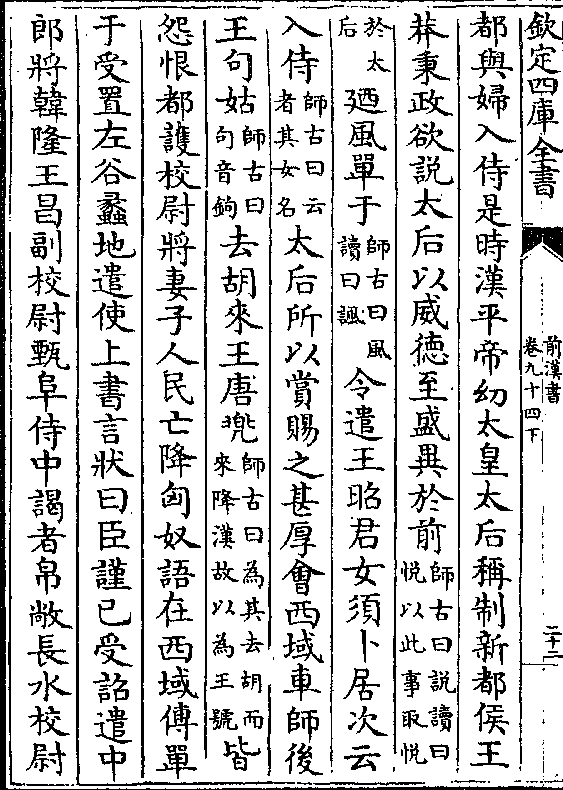 欽定四庫全書
前漢書
卷九十四下
二十二
都與婦入侍是時漢平帝幼太皇太后稱制新都侯王
莽秉政欲說太后以威德至盛異於前師古曰說讀曰悅以此事取悅
於太后廼風單于師古曰風讀曰諷令遣王昭君女須卜居次云
入侍師古曰云者其女名太后所以賞賜之甚厚會西域車師後
王句姑師古曰句音鉤去胡來王唐兠師古曰為其去胡而來降漢故以為王號皆
怨恨都護校尉將妻子人民亡降匈奴語在西域傳單
于受置左谷蠡地遣使上書言狀曰臣謹已受詔遣中
郎將韓隆王昌副校尉甄阜侍中謁者帛敞長水校尉